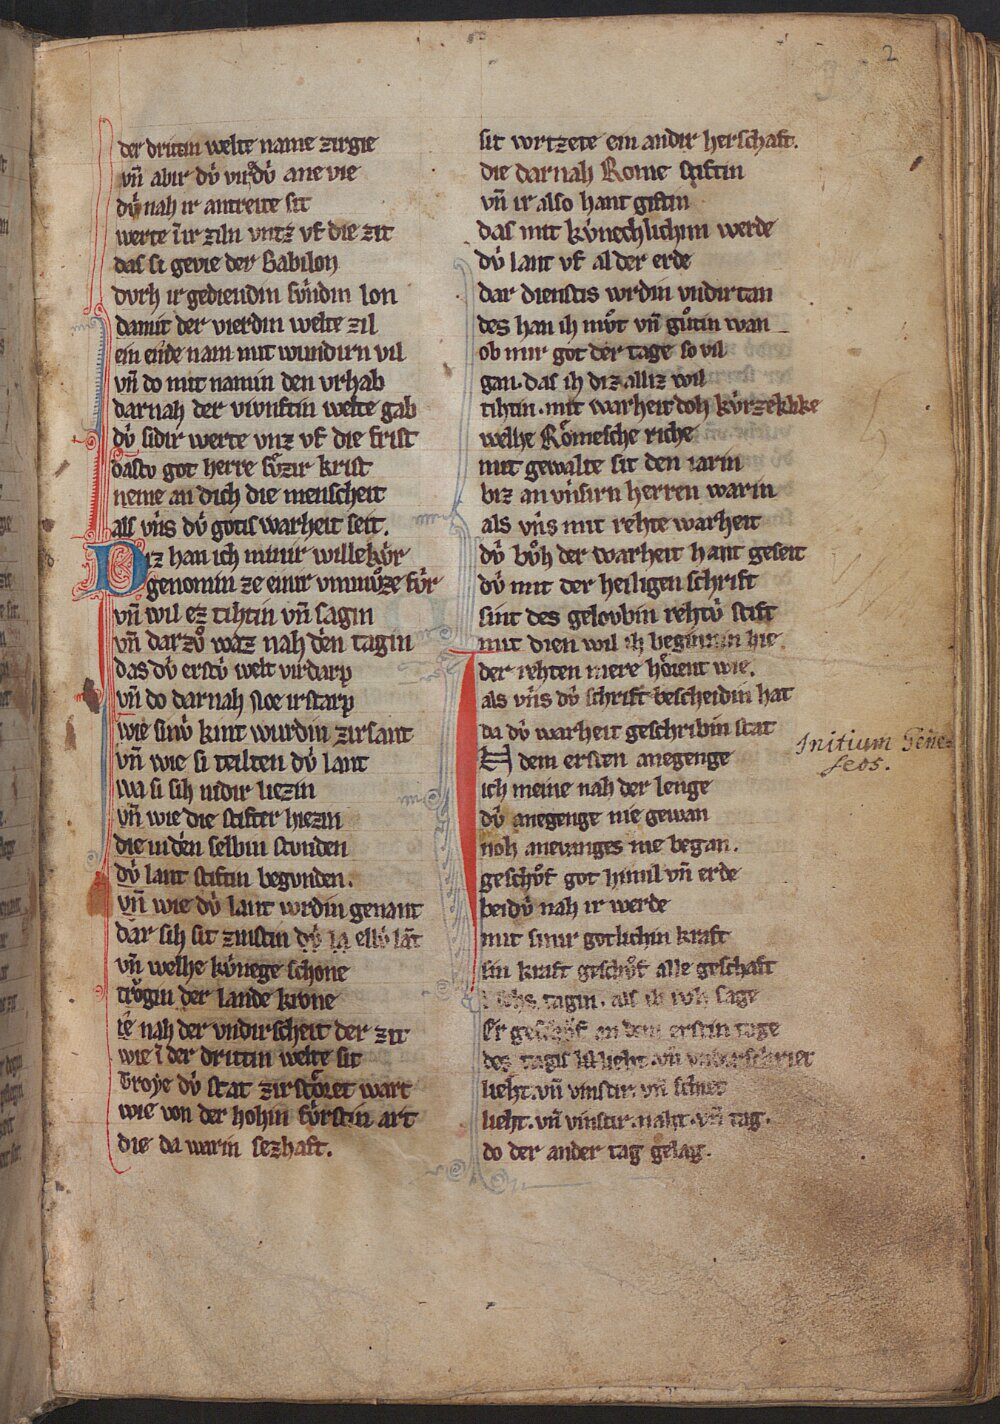 2
der drittin welte name zirgie
vn̄ abir dv̍ virdv̍ ane vie
dv̍ nah ir antreite sit
werte ī ir ziln vntz vf die zit
das si gevie der Babilon
dvrh ir gediendin svndin lon
damit der vierdin welte zil
ein ende nam mit wundirn vil
vn̄ do mit namin den vrhab
darnah der vivnftin welte gab
dv̍ sidir werte vnz vf die frist
dastv got herre svzir krist
neme an dich die menscheit
als vn̍s dv̍ gotis warheit seit.
Diz han ich minir willekv̍r
genomin ze einir vnmv̊ze fv̍r
vn̄ wil ez tihtin vn̄ sagin
vn̄ darzv̊ waz nah den tagin
das dv̍ erstv̍ welt virdarp
vn̄ do darnah Noe irstarp
wie sinv̍ kint wurdin zirsant
vn̄ wie si teilten dv̍ lant
wa si sih nidir liezin
vn̄ wie die stifter hiezin
die in den selbin stvnden
dv̍ lant stiftin begvnden.
vn̄ wie dv̍ lant wrdin genant
dar sih sit zinstin dv̍ ellv̍ lāt
vn̄ welhe kv̍nege schone
trv̊gin der lande krone
ie nah der vndirscheit der zit
wie ī der drittin welte sit
Troye dv̍ stat zirstȯret wart
wie von der hohin fv̍rstin art
die da warin sezhaft.
sit wrtzete ein andir herschaft.
die darnah Rome stiftin
vn̄ ir also hant giftin
das mit kv̍nechlichim werde
dv̍ lant vf al der erde
dar dienstis wrdin vndirtan
des han ih mv̊t vn̄ gv̊tin wan
ob mir got der tage so vil
gan. das ih diz alliz wil
tihtin. mit warheit doh kv̍rzeklike
welhe Rȯmesche riche
mit gewalte sit den iarin
biz an vn̍sirn herren warin
als vn̍s mit rehte warheit
dv̍ bv̊h der warheit hant geseit
dv̍ mit der heiligen schrift
sint des gelovbin rehtv̍ stift
mit dien wil ih beginnin hie
der rehten mere hȯrent wie.
als vn̍s dv̍ schrift bescheidin hat
da dv̍ warheit geschribin stat
In dem ersten anegenge
ich meine nah der lenge
dv̍ anegenge nie gewan
noh anevanges nie began.
geschv̊f got himil vn̄ erde
beidv̍ nah ir werde
mit sinir gotlichin kraft
sin kraft geschv̊f alle geschaft
sehs tagin. als ih sage
Er geschv̊f an dem erstin tage
des tagis lieht vn̄ vndirschriet
lieht. vn̄ vinstir. vn̄ schiet
lieht. vn̄ vinstir. naht. vn̄ tag.
do der ander tag gelag.
Initium Gene-
seos.